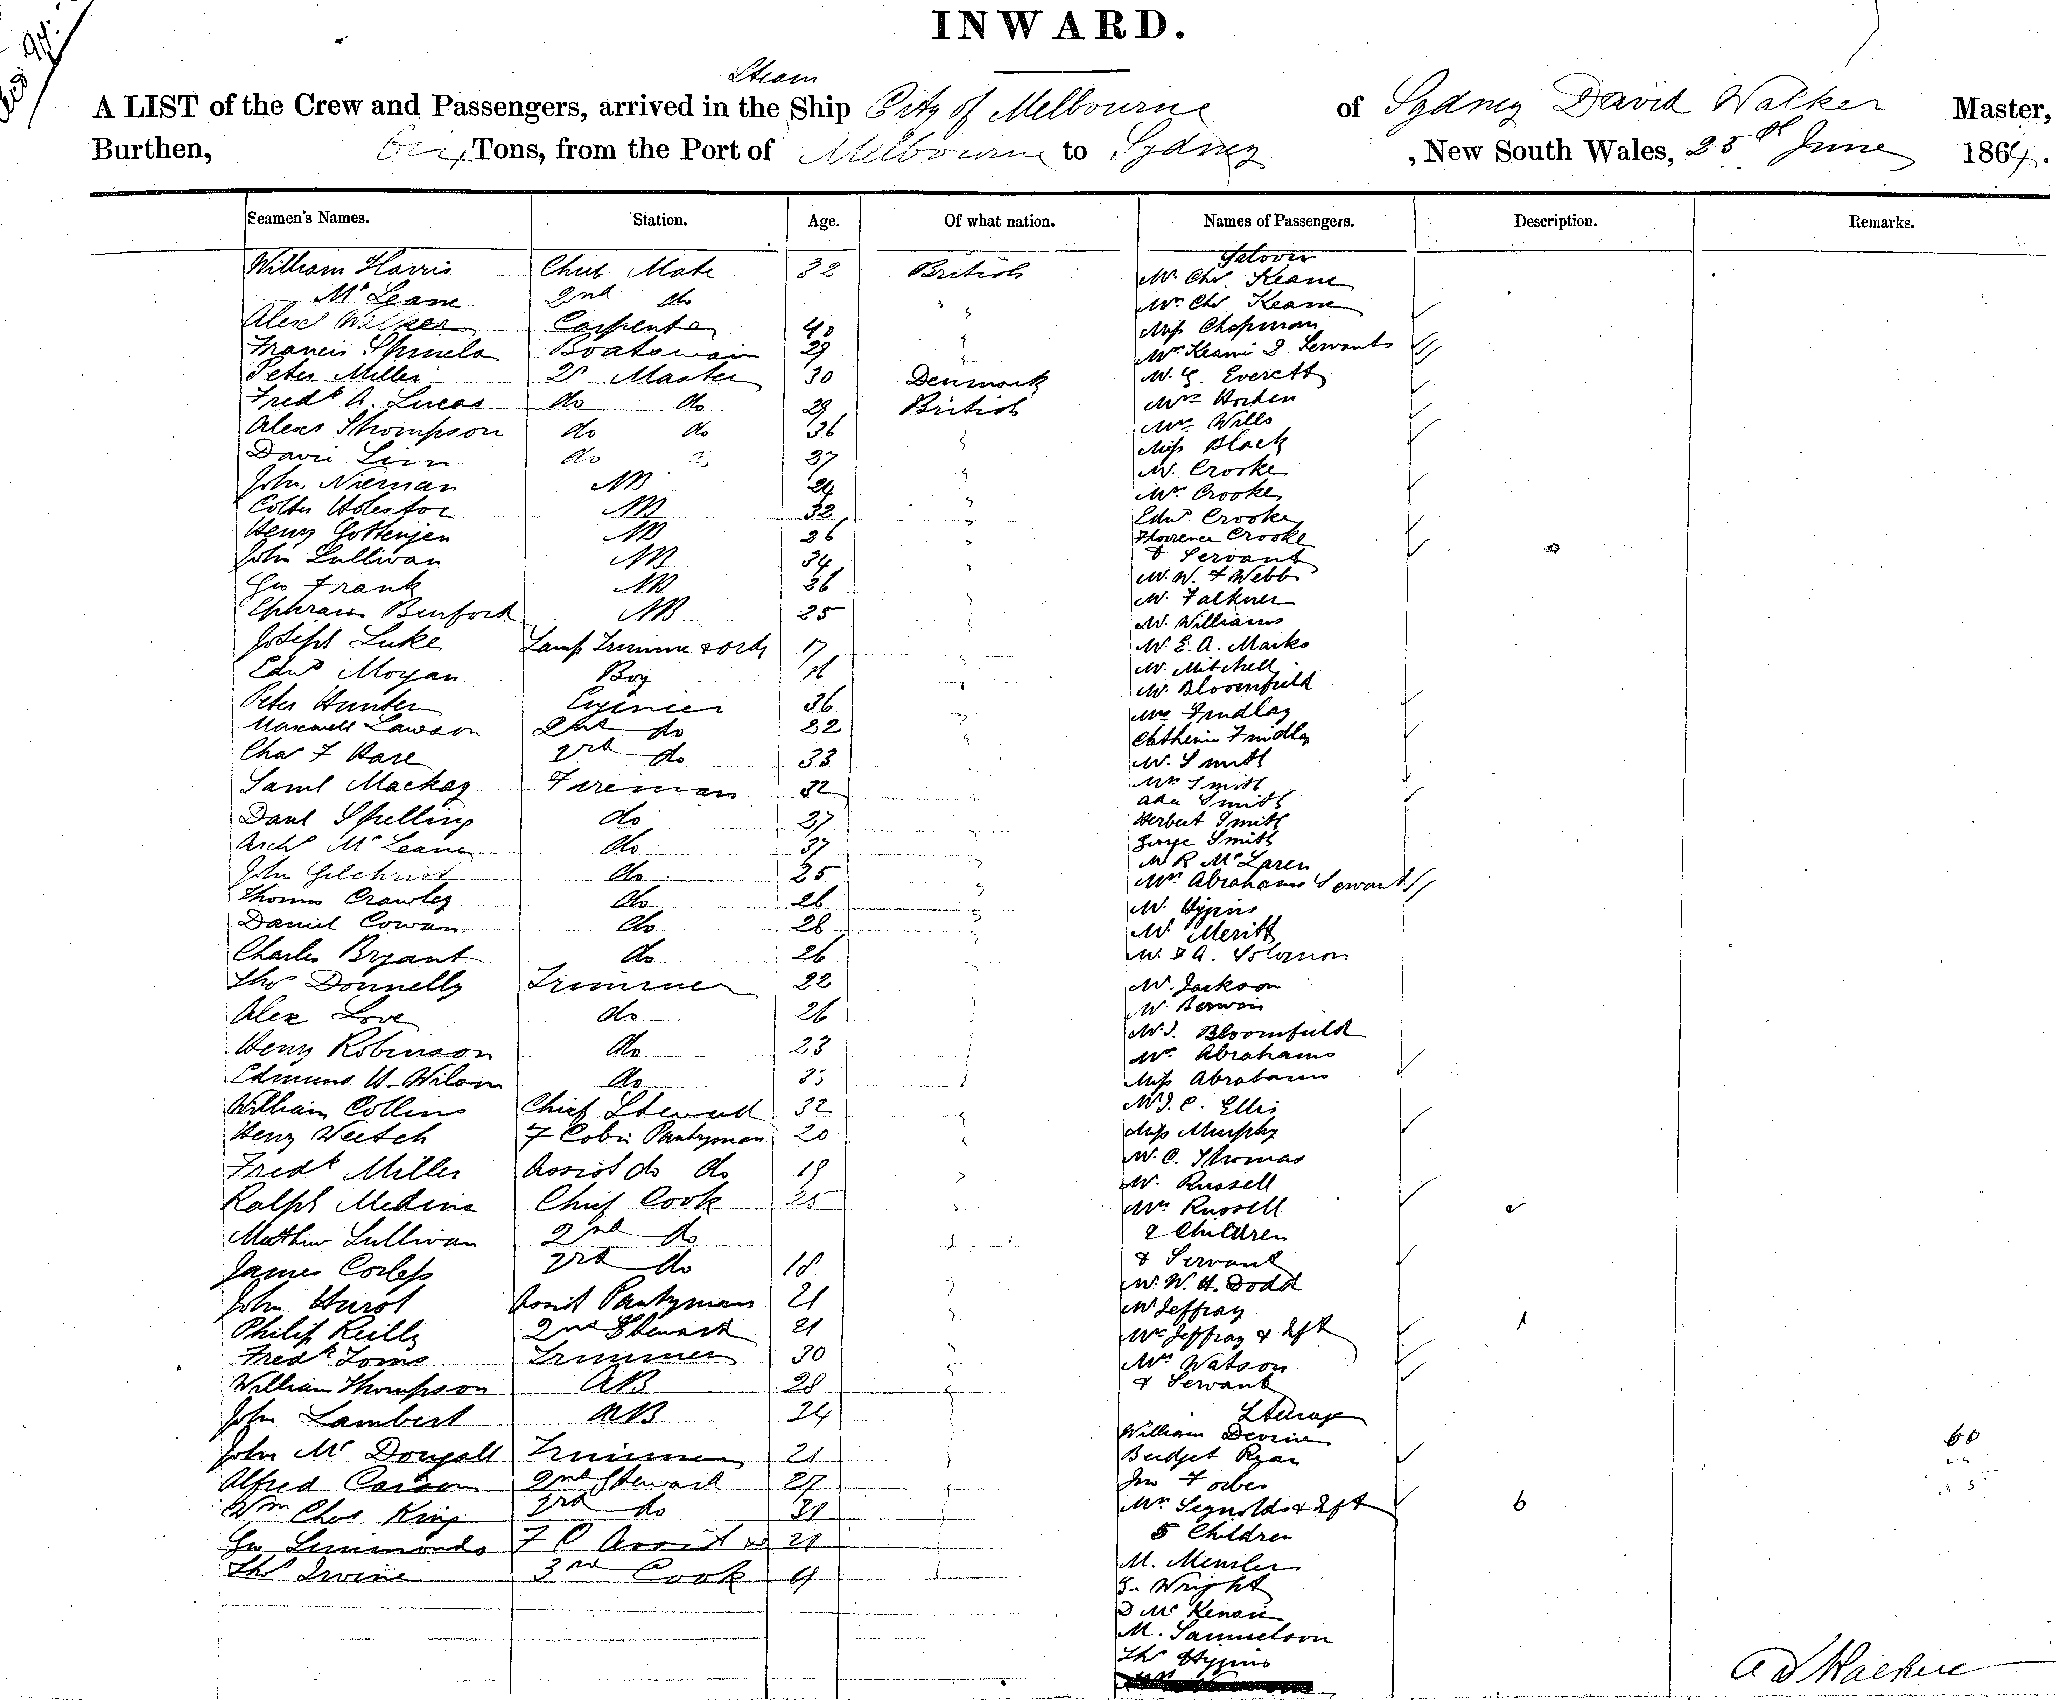 INWARD.
Steam
A LIST of the Crew and Passengers, arrived in the Ship City of Melbourne of Sydney David Walker Master,
Burthen, Tons, from the Port of Melbourne to Sydney, New South Wales, 25th June 1864.
Seamen's Names. Station. Age. Of what nation. Names of Passengers. Description. Remarks.
Saloon
William Harris Chief Mate 32 British Mr Chs Keane
McLeane 2nd do " Mrs Chs Keane
Alexr Walker Carpenter 40 " Miss Chapman
Francis Boatswain 29 " Mrs Keane 2 Servants
Peter Miller Qr Master 30 Denmark Mr G. Everett
Fredk A. Lucas do do 29 British Mrs Horden
Alexr Thompson do do 36 " Mrs Wills
David Linn do do 37 " Miss Black
John Niernan AB 24 " Mr Crooke
AB 32 " Mrs Crooke
Henry Gottenjen AB 26 " Edwd Crooke
Florence Crooke
John Sullivan AB 34 " & Servant
Geo Frank AB 36 " Mr W. F Webb
Mr Falkner
Ephraim Binford AB 25 " Mr Williams
Joseph Luke Lamp Trimmer & Ordy 17 " Mr E. A. Marks
Mr Mitchell
Edwd Moyan Boy 16 " Mr Bloomfield
Peter Hunter Engineer 36 " Mrs Findlay
Maxwell Lawson 2nd do 32 " Catherine Findlay
Chas F Hare 3rd do 33 Mr Smith
Saml Mackay Fireman 32 " Mrs Smith
Ada Smith
Danl Spelling do 37 " Herbert Smith
Archd McLeane do 37 " George Smith
Mr R McLaren
John Gilchrist do 25 " Mrs Abrahams Servant
Thomas Crawley do 26 " Mr Higgins
Daniel Cowan do 28 " Mr Meritt
Charles Bryant do 26 " Mr A. Solomon
Thos Donnelly Trimmer 22 " Mr Jackson
Alex Love do 26 " Mr
Mr J. Bloomfield
Henry Robinson do 23 " Mrs Abrahams
Edmund H. Wilson do " Miss Abrahams
William Collins Chief Steward 32 " Mr J. C. Ellis
Henry Veitch F Cabin Pantryman 20 " Miss Murphy
Fredk Miller Assist do do 19 " Mr C. Thomas
Mr Russell
Ralph Medine Chief Cook 25 " Mrs Russell
Matthew Sullivan 2nd do " 2 Children
James Corless 3rd do 18 " & Servant
Mr W. H. Dodd
John Hurst Assist Pantryman 21 " Mr Jeffray
Philip Reilly 2nd Steward 21 " Mrs Jeffray & Inft 1
Fredk Toms Trimmer 30 " Mrs Watson
William Thompson AB 28 " & Servant
John Lambert AB 24 " Steerage
William Devine 60
John McDongall Trimmer 21 " Bridget Ryan
Alfred Carson 2nd Steward 27 " Jno Forbes
Wm Chas King 3rd do 31 " Mrs & Inft 6
Geo Simmonds F C Assist do 21 " 5 Children
Thos Irvine 3rd Cook 19 " M. Mensler
G. Wright
D McKenzie
M. Samuelson
Thos Higgins